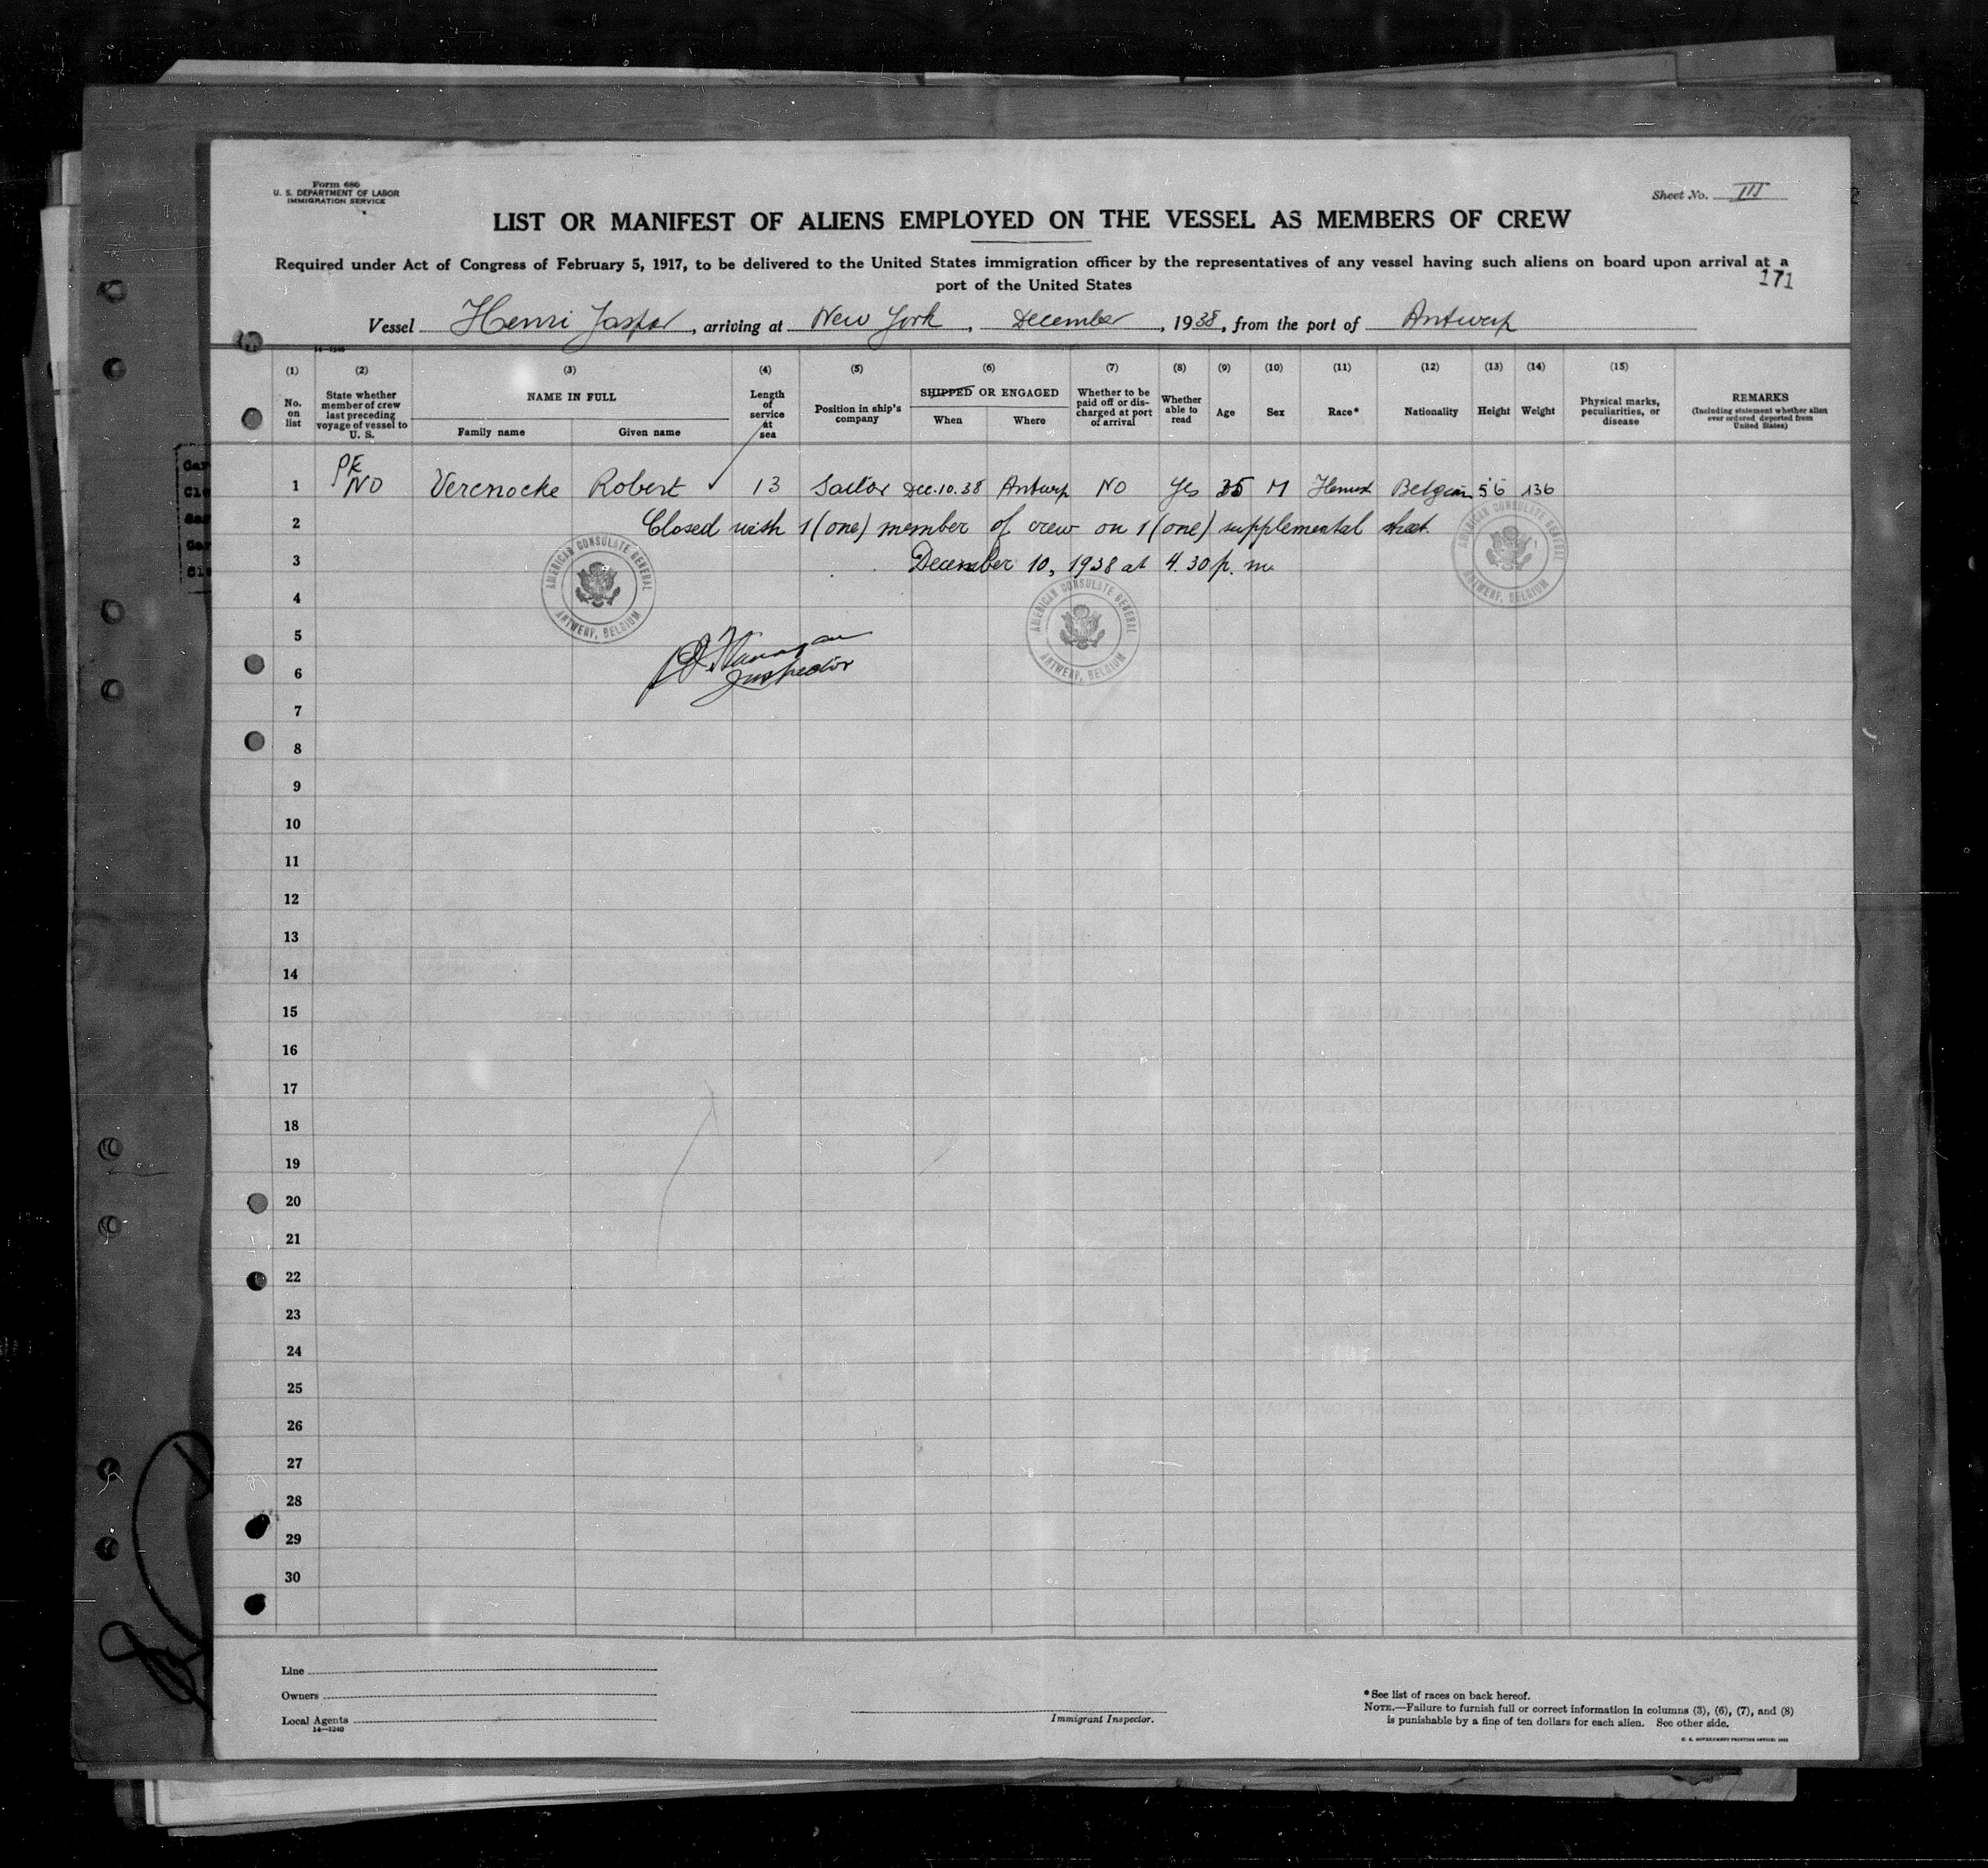 Form 680
U. S. DEPARTMENT OF LABOR
IMMIGRATION SERVICE
Sheet No. III
LIST OR MANIFEST OF ALIENS EMPLOYED ON THE VESSEL AS MEMBERS OF CREW
Required under Act of Congress of February 5, 1917, to be delivered to the United States immigration officer by the representatives of any vessel having such aliens on board upon arrival at a
port of the United States
171
Vessel Henri Jaspar, arriving at New York, December, 1938, from the port of Antwerp
14—1240
(1) (2) (3) (4) (5) (6) (7) (8) (9) (10) (11) (12) (13) (14) (15)
No. on list
State whether member of crew last preceding voyage of vessel to U. S.
NAME IN FULL
Family name
Given name
Length of service at sea
Position in ship's company
SHIPPED OR ENGAGED
When
Where
Whether to be paid off or discharged at port of arrival
Whether able to read
Age
Sex
Race*
Nationality
Height
Weight
Physical marks, peculiarities, or disease
REMARKS
(Including statement whether alien ever ordered deported from United States)
PE
1 NO Verenocke Robert 13 Sailor Dec.10.38 Antwerp NO Yes 35 M Belgian 5 6 136
2 Closed with 1 (one) member of crew on 1 (one) supplemental sheet.
3 December 10, 1938 at 4.30 p. m.
AMERICAN CONSULATE GENERAL
ANTWERP, BELGIUM
AMERICAN CONSULATE GENERAL
ANTWERP, BELGIUM
AMERICAN CONSULATE GENERAL
ANTWERP, BELGIUM
4
5
Inspector
6
7
8
9
10
11
12
13
14
15
16
17
18
19
20
21
22
23
24
25
26
27
28
29
30
Line
Owners
Local Agents
14—1240
Immigrant Inspector.
*See list of races on back hereof.
NOTE.—Failure to furnish full or correct information in columns (3), (6), (7), and (8)
is punishable by a fine of ten dollars for each alien. See other side.